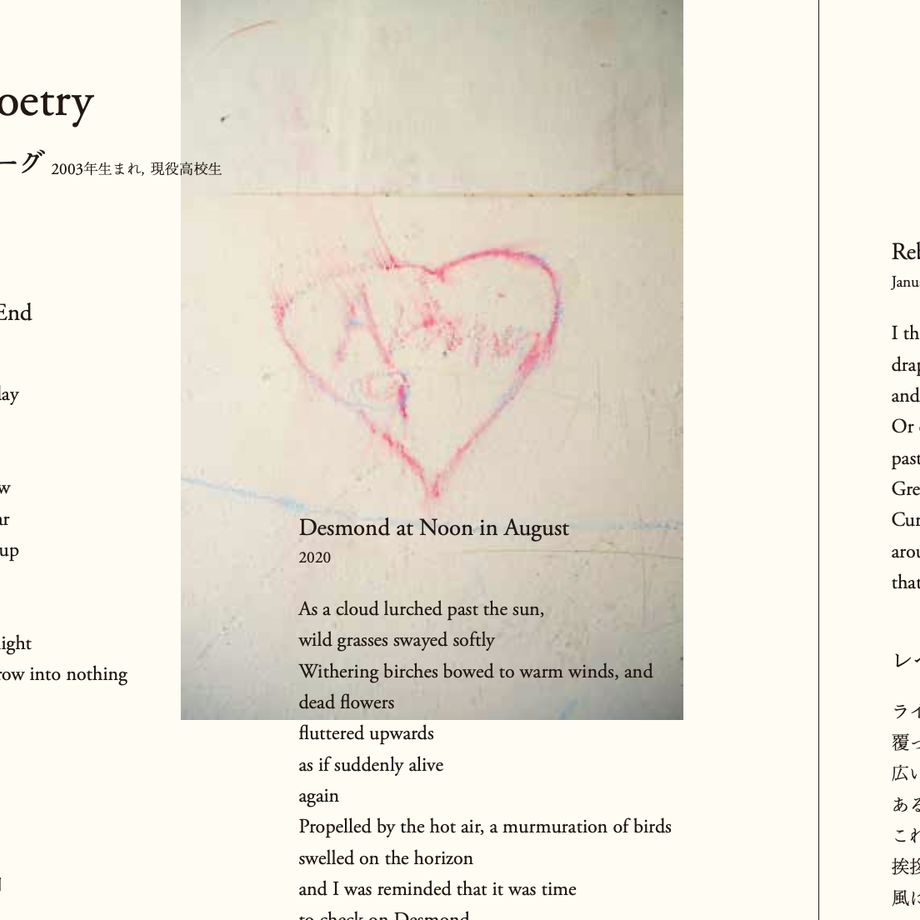 oetry
ーグ 2003年生まれ, 現役高校生
End
day
w
ar
up
ight
row into nothing
Desmond at Noon in August
2020
As a cloud lurched past the sun,
wild grasses swayed softly
Withering birches bowed to warm winds, and
dead flowers
fluttered upwards
as if suddenly alive
again
Propelled by the hot air, a murmuration of birds
swelled on the horizon
and I was reminded that it was time
to check on Desmond
Rel
Janu
I th
drap
and
Or
past
Gre
Cur
arou
that
レイ
ライ
覆っ
広い
ある
これ
挨拶
風に